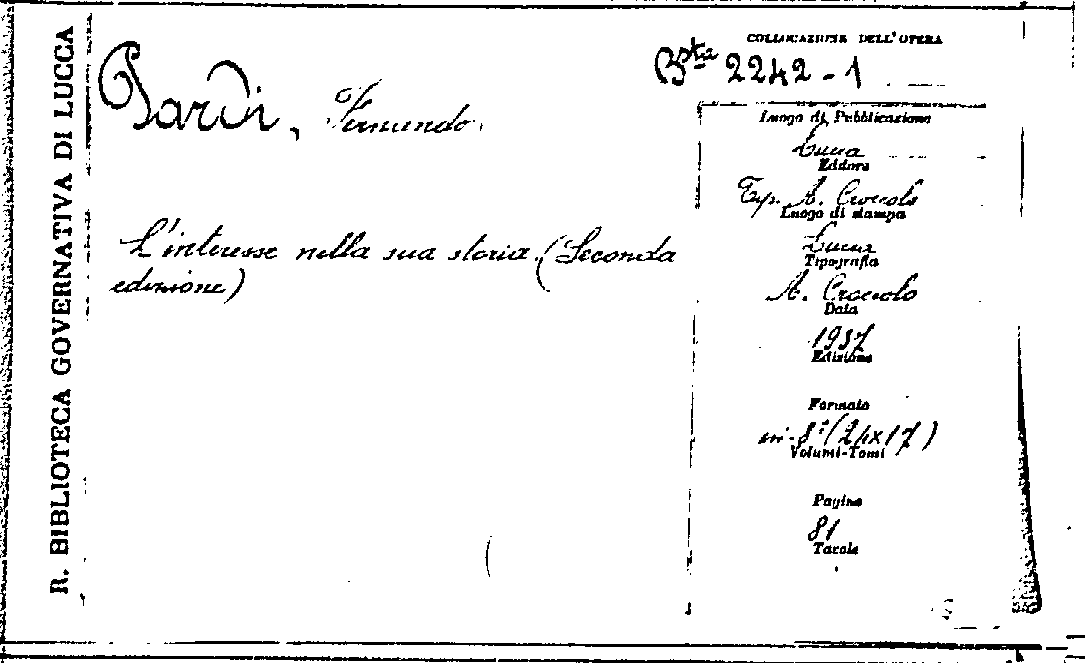 R. BIBLIOTECA GOVERNATIVA DI LUCCA
COLLOCAZIONE DELL'OPERA
Bta 2242-1
Pardi, Fernando.
L'interesse nella sua storia. (Seconda
edizione)
Luogo di Pubblicazione
Lucca
Editore
Tip. A. Croccolo
Luogo di stampa
Lucca
Tipografia
A. Croccolo
Data
1937
Edizione
Formato
in-8° (24x17)
Volumi-Tomi
Pagine
81
Tavole